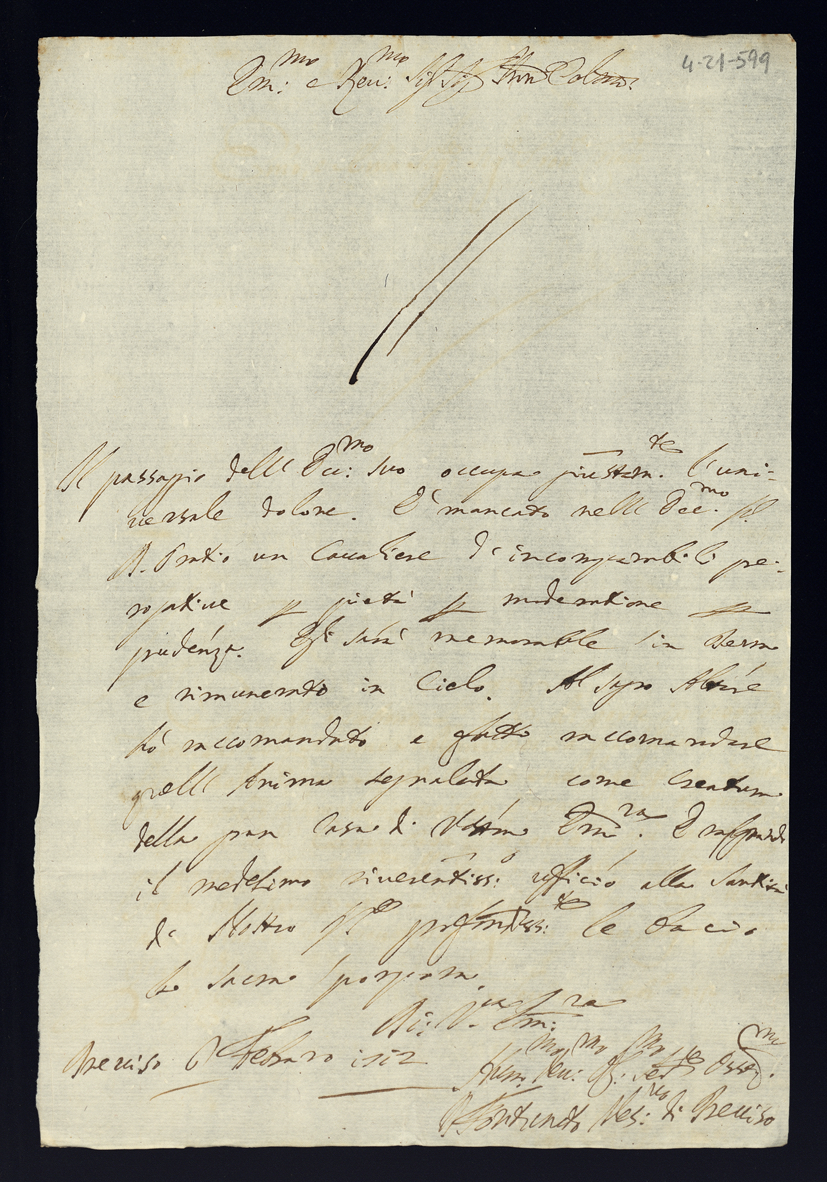 Em:mo e Reu:mo Sig.r Sig.r Pron Colmo:
4-21-599
Il passagio dell' Ecc:mo suo occupa giustam.te l'uni-
versale dolore. È mancato nell' Ecc.mo Sr.
D. un Caualiere d'incomparabili pre-
rogative p pietà p moderatione p
prudenza. Egli sarà memorabile in terra
e rimunerato in Cielo. Al sagro Altare
hò raccomandato e fatto raccomandare
quell' Anima segnalata come Creatura
della gran Casa di Vostra Em.za. E
il medesimo riverentiss:o ufficio alla Santità
di Nostro S.re profondiss:te le bacio
la sacra porpora
Di V.ra Em:za
Treviso Febraro
Hum.mo Deu:mo Ser.re Osseq.mo
Fortunato Ves:uo di Treviso